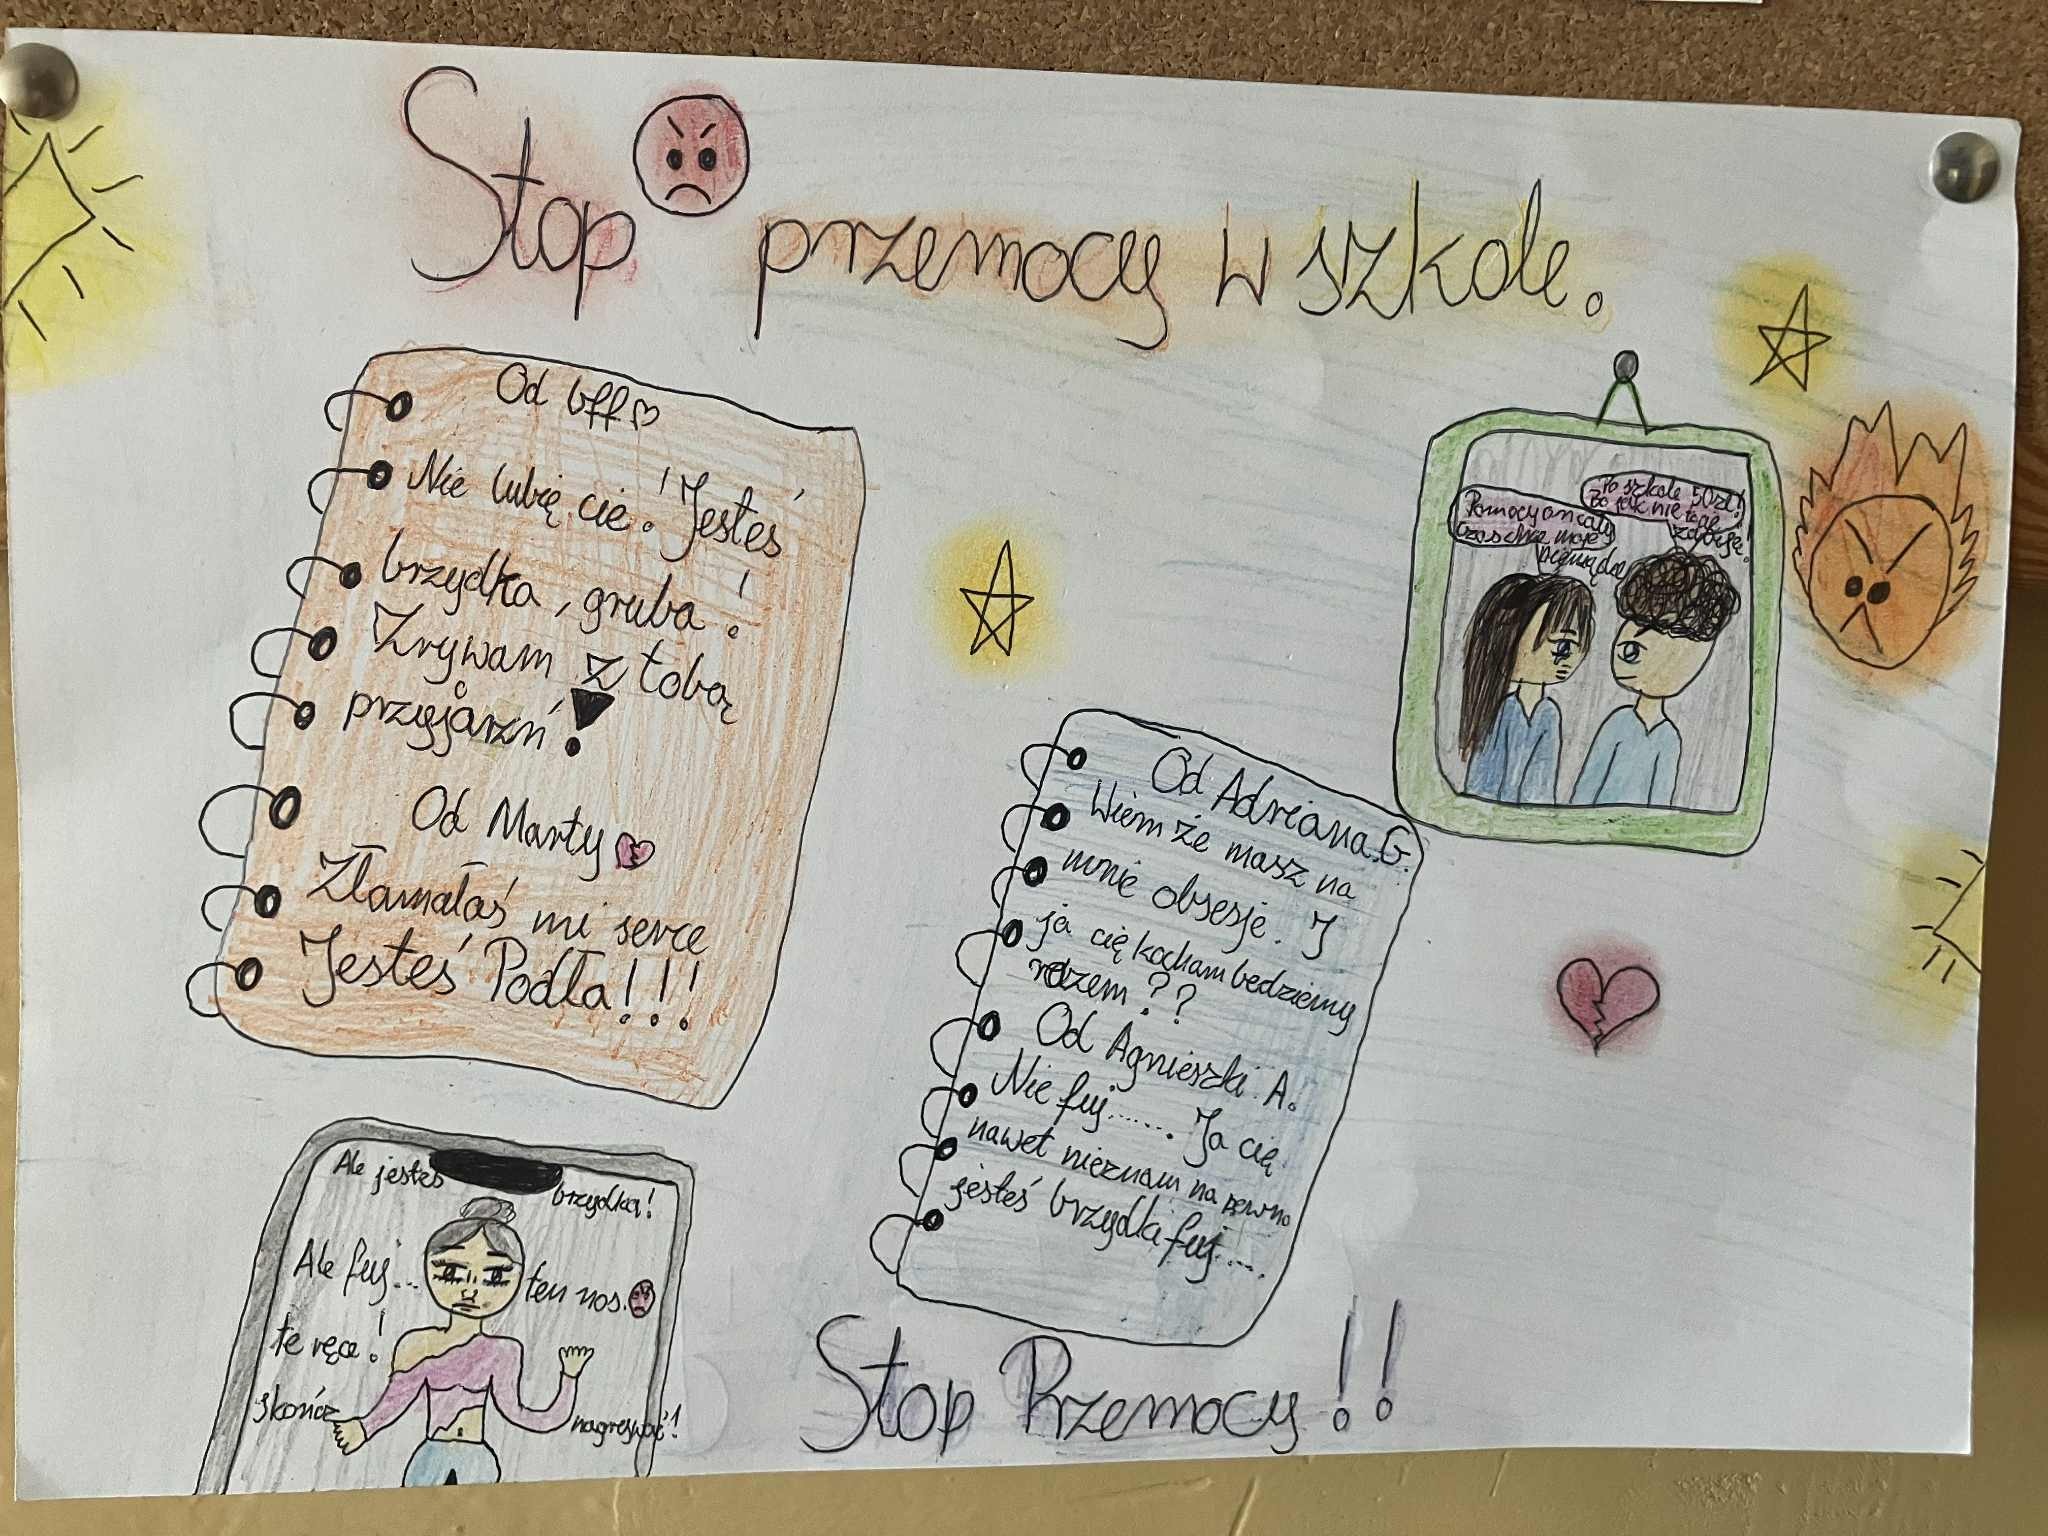 Stop przemocy w szkole.
Od bff
Nie lubię cie! Jesteś
brzydka, gruba!
Zrywam z tobą
przyjarzń!
Od Marty
Złamałaś mi serce
Jesteś Podła!!!
Po szkole 50zł!
bo jak nie to cię
zabiję!
Pomocy on cały
czas chce moje
pieniądze
Od Adriana.G.
Wiem że masz na
mnie obsesje. I
ja cię kocham bedziemy
rodzem??
Od Agnieszki A.
Nie fuj....... Ja cię
nawet nieznam na pewno
jesteś brzydki fuj.....
Ale jesteś brzydka!
Ale fuj... ten nos.
te ręce!
skończ nagrywać!
Stop Przemocy!!